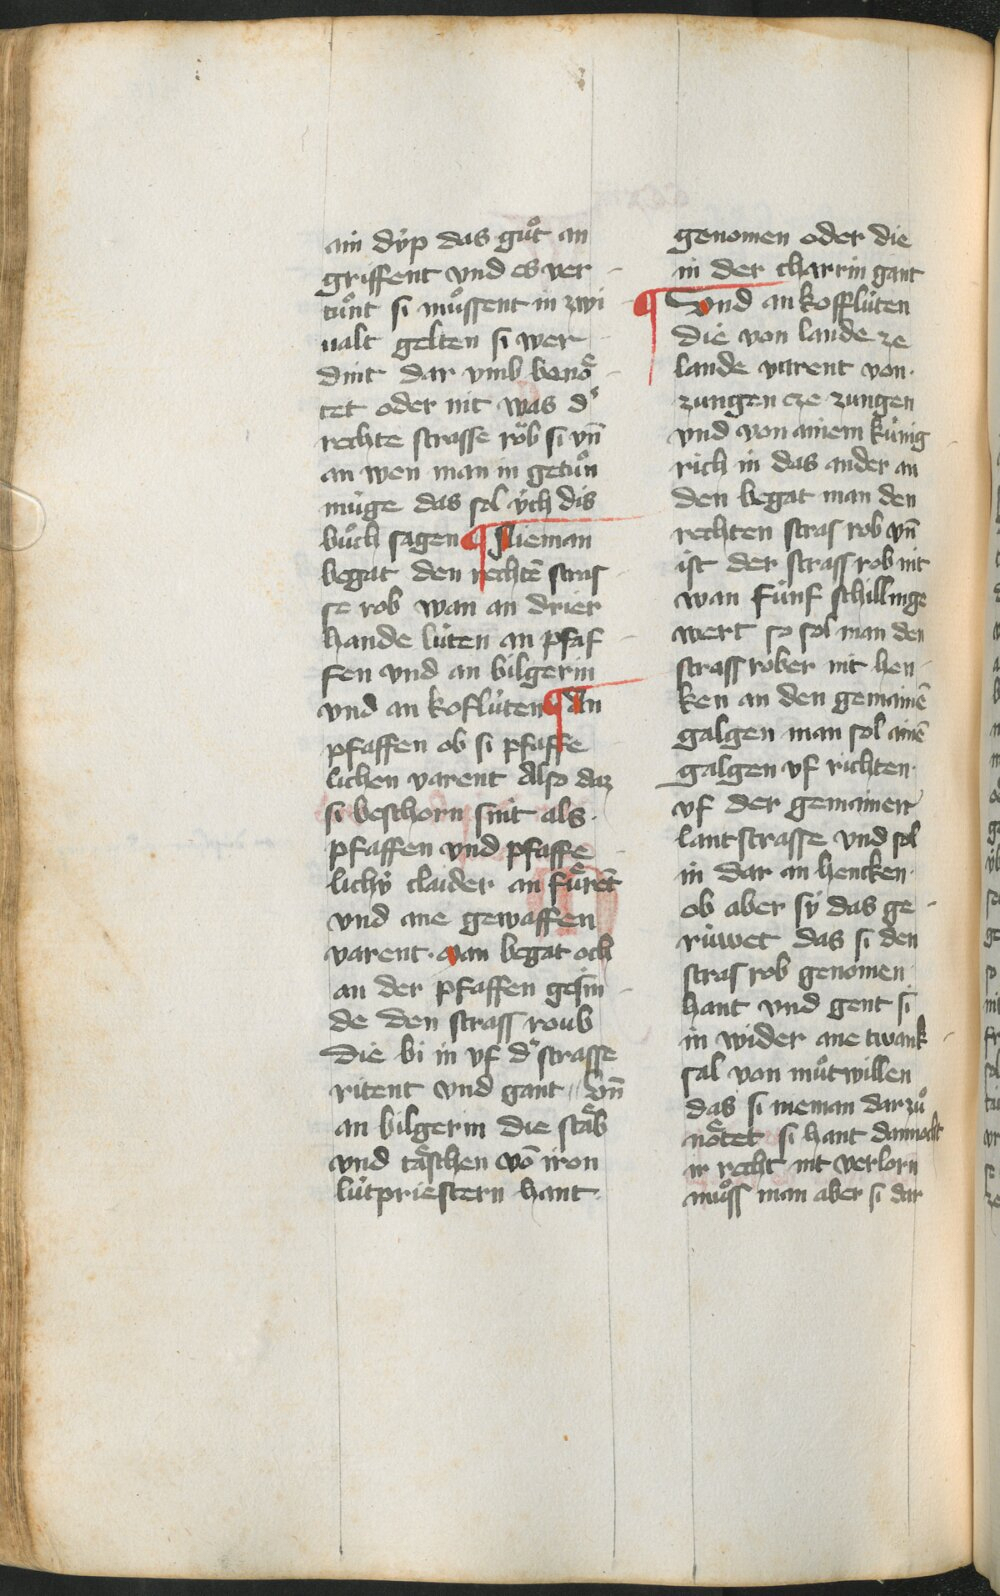 ain dyp das guͦt an
griffent vnd es ver
tuͦnt si muͦssent in zwi
ualt gelten si wer
dint dar vmb benoͤ
tet oder nit was d᾽
rechte strasse roͮb si vn̄
an wen man in getuͦn
muͤge das sol v́ch dis
buͦch sagen ¶ Nieman
begat den rechtē stras
se rob wan an drier
hande luten an pfaf
fen vnd an bilgerin
vnd an kofluten ¶ An
pfaffen ob si pfaffe
lichen varent Also daz
si beschorn sint als
pfaffen vnd pfaffe
lichy claider an fuͤret
vnd ane gewaffen
varent. man begat och
an der pfaffen gesin
de den strass roub
die bi in vf d᾽ strasse
ritent vnd gant Vn̄
an bilgerin die staͤb
vnd taͤschen vō iron
lútpriestern hant
genomen oder die
in der charrin gant
¶ Vnd an koffluten
die von lande ze
lande varent von
zungen cze zungen
vnd von ainem kúnig
rich in das ander an
den begat man den
rechten stras rob vn̄
ist der strass rob nit
wan fúnf schillinge
wert so sol man den
strassrober nit hen
ken an den gemainē
galgen man sol ainē
galgen vf richten
vf der gemainen
lantstrasse vnd sol
in dar an hencken
ob aber sy das ge
rúwet das si den
stras rob genomen
hant vnd gent si
in wider ane twank
sal von muͦtwillen
das si nieman darzuͦ
noͤtet si hant dannocht
ir recht nit verlorn
muͦss man aber si dar